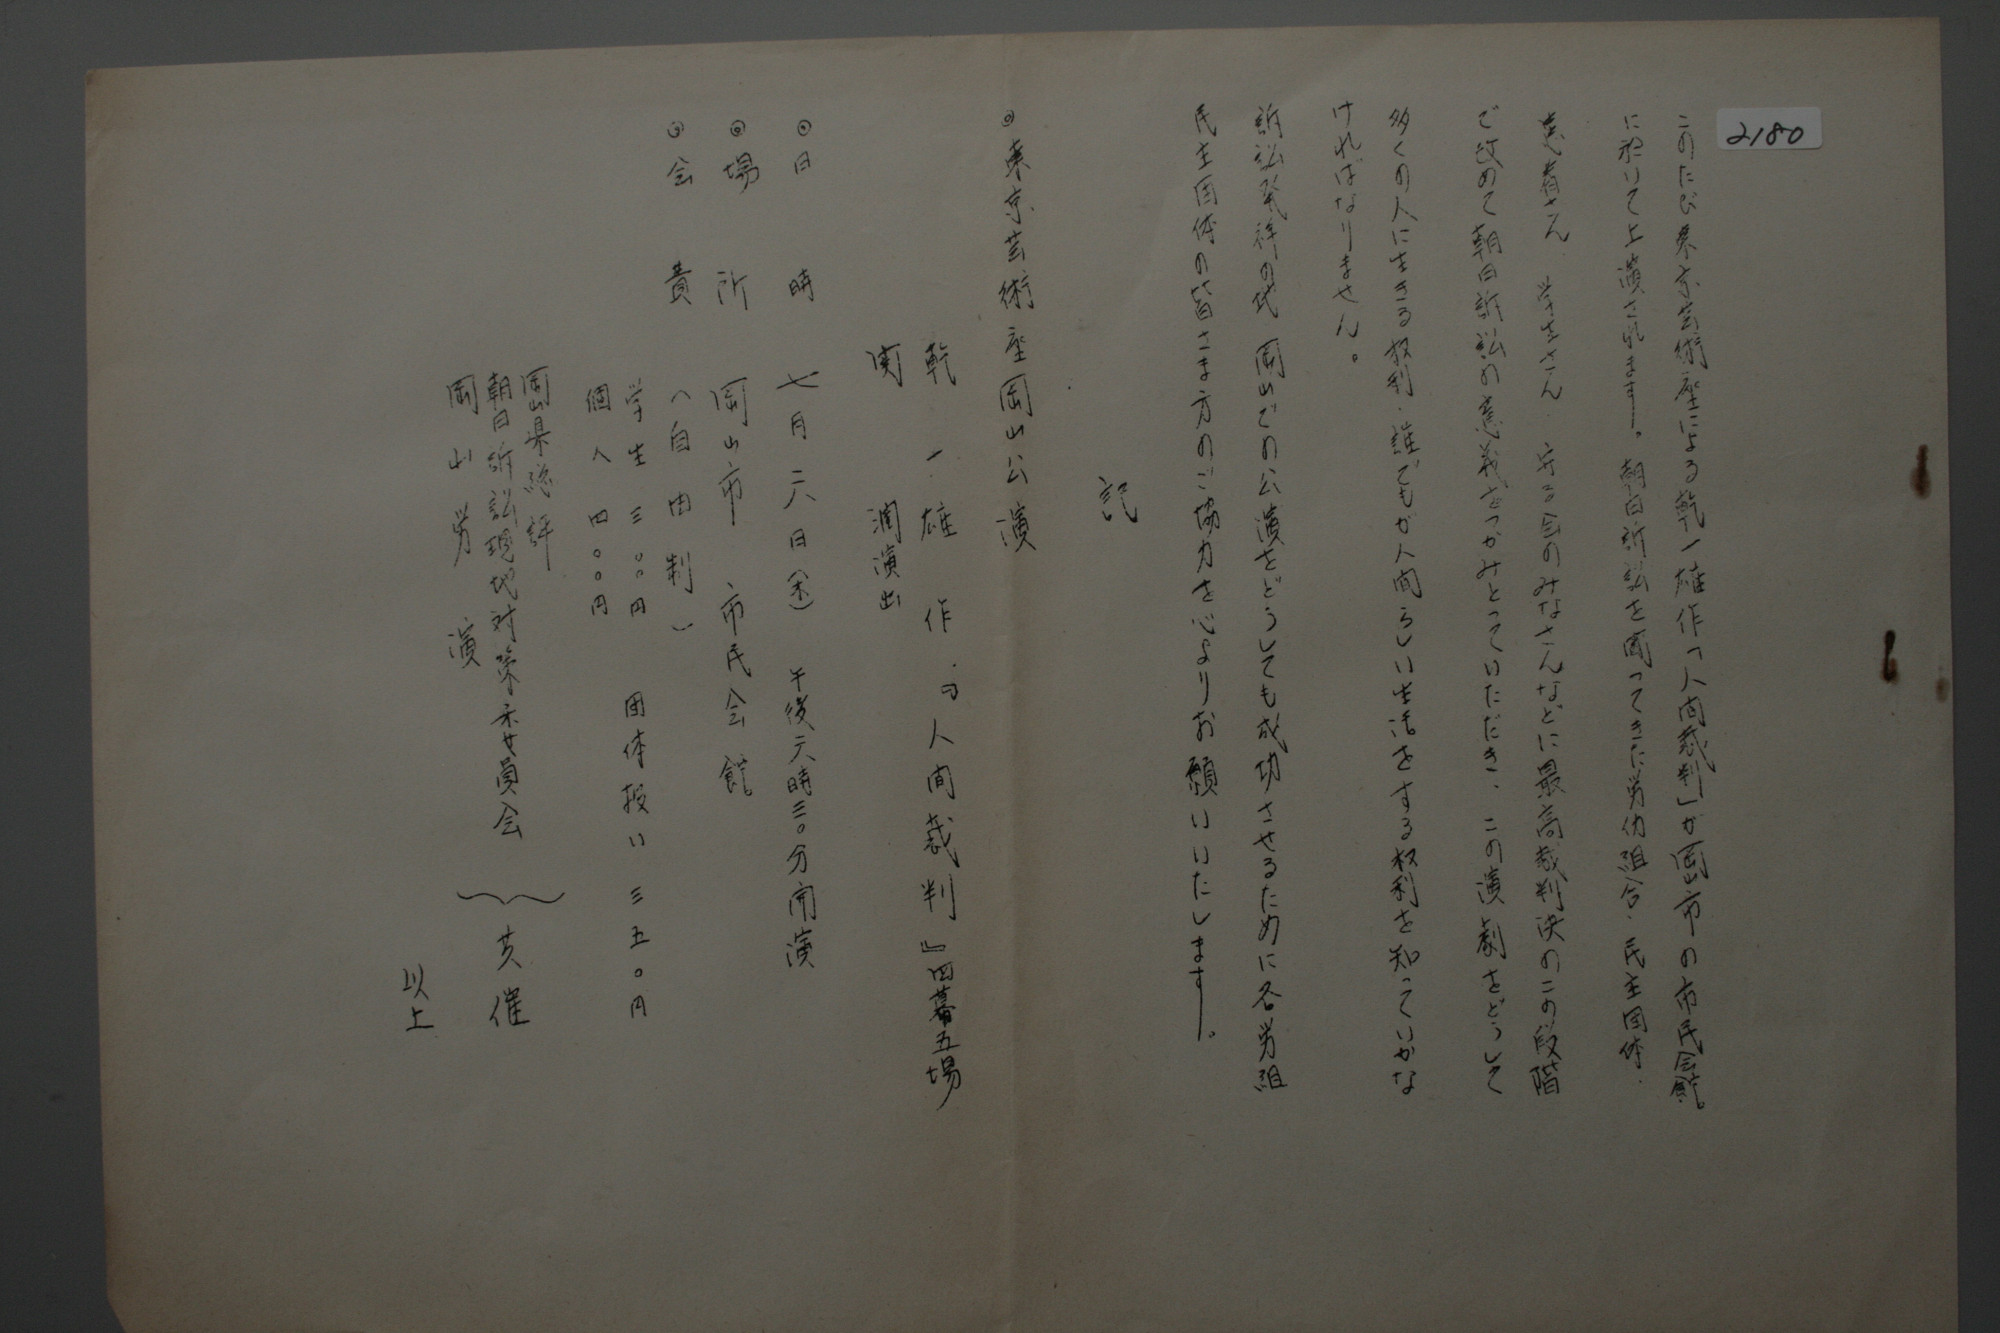 2180
このたび東京芸術座による乾一雄作「人間裁判」が岡山市の市民会館
に於いて上演されます。朝日訴訟を闘ってきた労仂組合・民主団体・
患者さん 学生さん・守る会のみなさんなどに最高裁判決のこの段階
で改めて朝日訴訟の意義をつかみとっていただき、この演劇をどうして
多くの人に生きる权利・誰でもが人間らしい生活をする权利を知っていかな
ければなりません。
訴訟発祥の地 岡山での公演をどうしても成功させるために各労組
民主団体の皆さま方のご協力を心よりお願いいたします。
記
◎東京芸術座岡山公演
乾一雄 作・『人間裁判』四幕五場
関 潤演出
◎日時 七月二八日(木) 午後六時三〇分開演
◎場所 岡山市 市民会館
◎会費 (自由制)
学生 三〇〇円 団体扱い 三五〇円
個人 四〇〇円
岡山県総評
朝日訴訟現地対策委員会
岡山労演
共催
以上